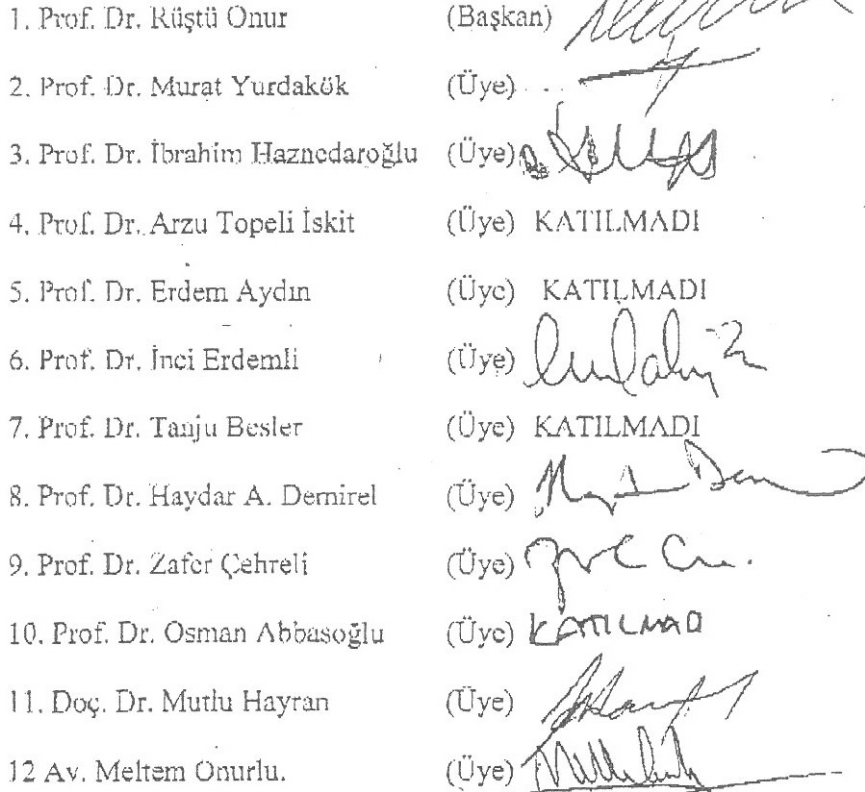 1. Prof. Dr. Rüştü Onur (Başkan)
2. Prof. Dr. Murat Yurdakök (Üye)
3. Prof. Dr. İbrahim Haznedaroğlu (Üye)
4. Prof. Dr. Arzu Topeli İskit (Üye) KATILMADI
5. Prof. Dr. Erdem Aydın (Üye) KATILMADI
6. Prof. Dr. İnci Erdemli (Üye)
7. Prof. Dr. Tanju Besler (Üye) KATILMADI
8. Prof. Dr. Haydar A. Demirel (Üye)
9. Prof. Dr. Zafer Çehreli (Üye)
10. Prof. Dr. Osman Abbasoğlu (Üye) KATILMADI
11. Doç. Dr. Mutlu Hayran (Üye)
12 Av. Meltem Onurlu. (Üye)